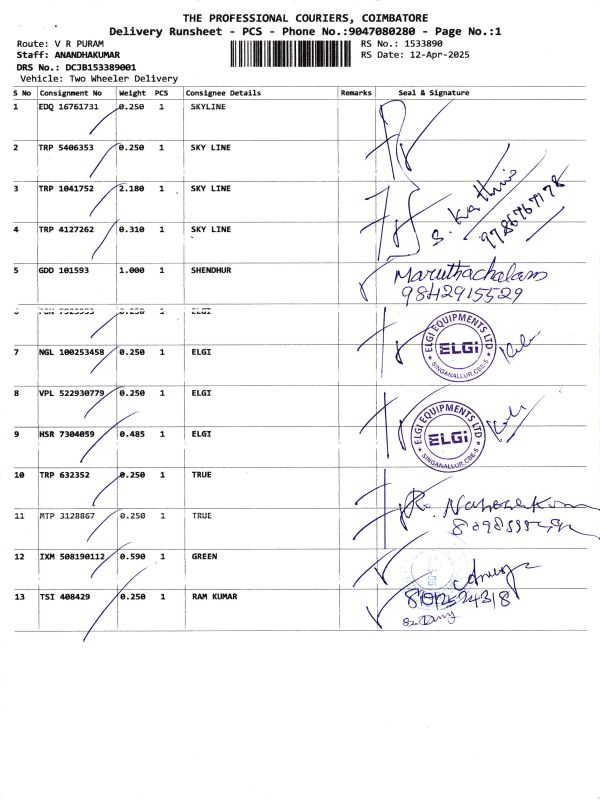 THE PROFESSIONAL COURIERS, COIMBATORE
Delivery Runsheet - PCS - Phone No.:9047080280 - Page No.:1
Route: V R PURAM RS No.: 1533890
Staff: ANANDHAKUMAR RS Date: 12-Apr-2025
DRS No.: DCJB153389001
Vehicle: Two Wheeler Delivery
S No Consignment No Weight PCS Consignee Details Remarks Seal & Signature
1 EDQ 16761731 0.250 1 SKYLINE
2 TRP 5406353 0.250 1 SKY LINE
3 TRP 1041752 2.180 1 SKY LINE
S. Kathir
9786767178
4 TRP 4127262 0.310 1 SKY LINE
5 GDD 101593 1.000 1 SHENDHUR Maruthachalam
9842915529
0.250 1 ELGI
ELGI EQUIPMENTS LTD
ELGi
SINGANALLUR,CBE-5
7 NGL 100253458 0.250 1 ELGI
8 VPL 522930779 0.250 1 ELGI
ELGI EQUIPMENTS LTD
ELGi
SINGANALLUR,CBE-5
9 HSR 7304059 0.485 1 ELGI
10 TRP 632352 0.250 1 TRUE
11 MTP 3128867 0.250 1 TRUE
12 IXM 508190112 0.590 1 GREEN
13 TSI 408429 0.250 1 RAM KUMAR